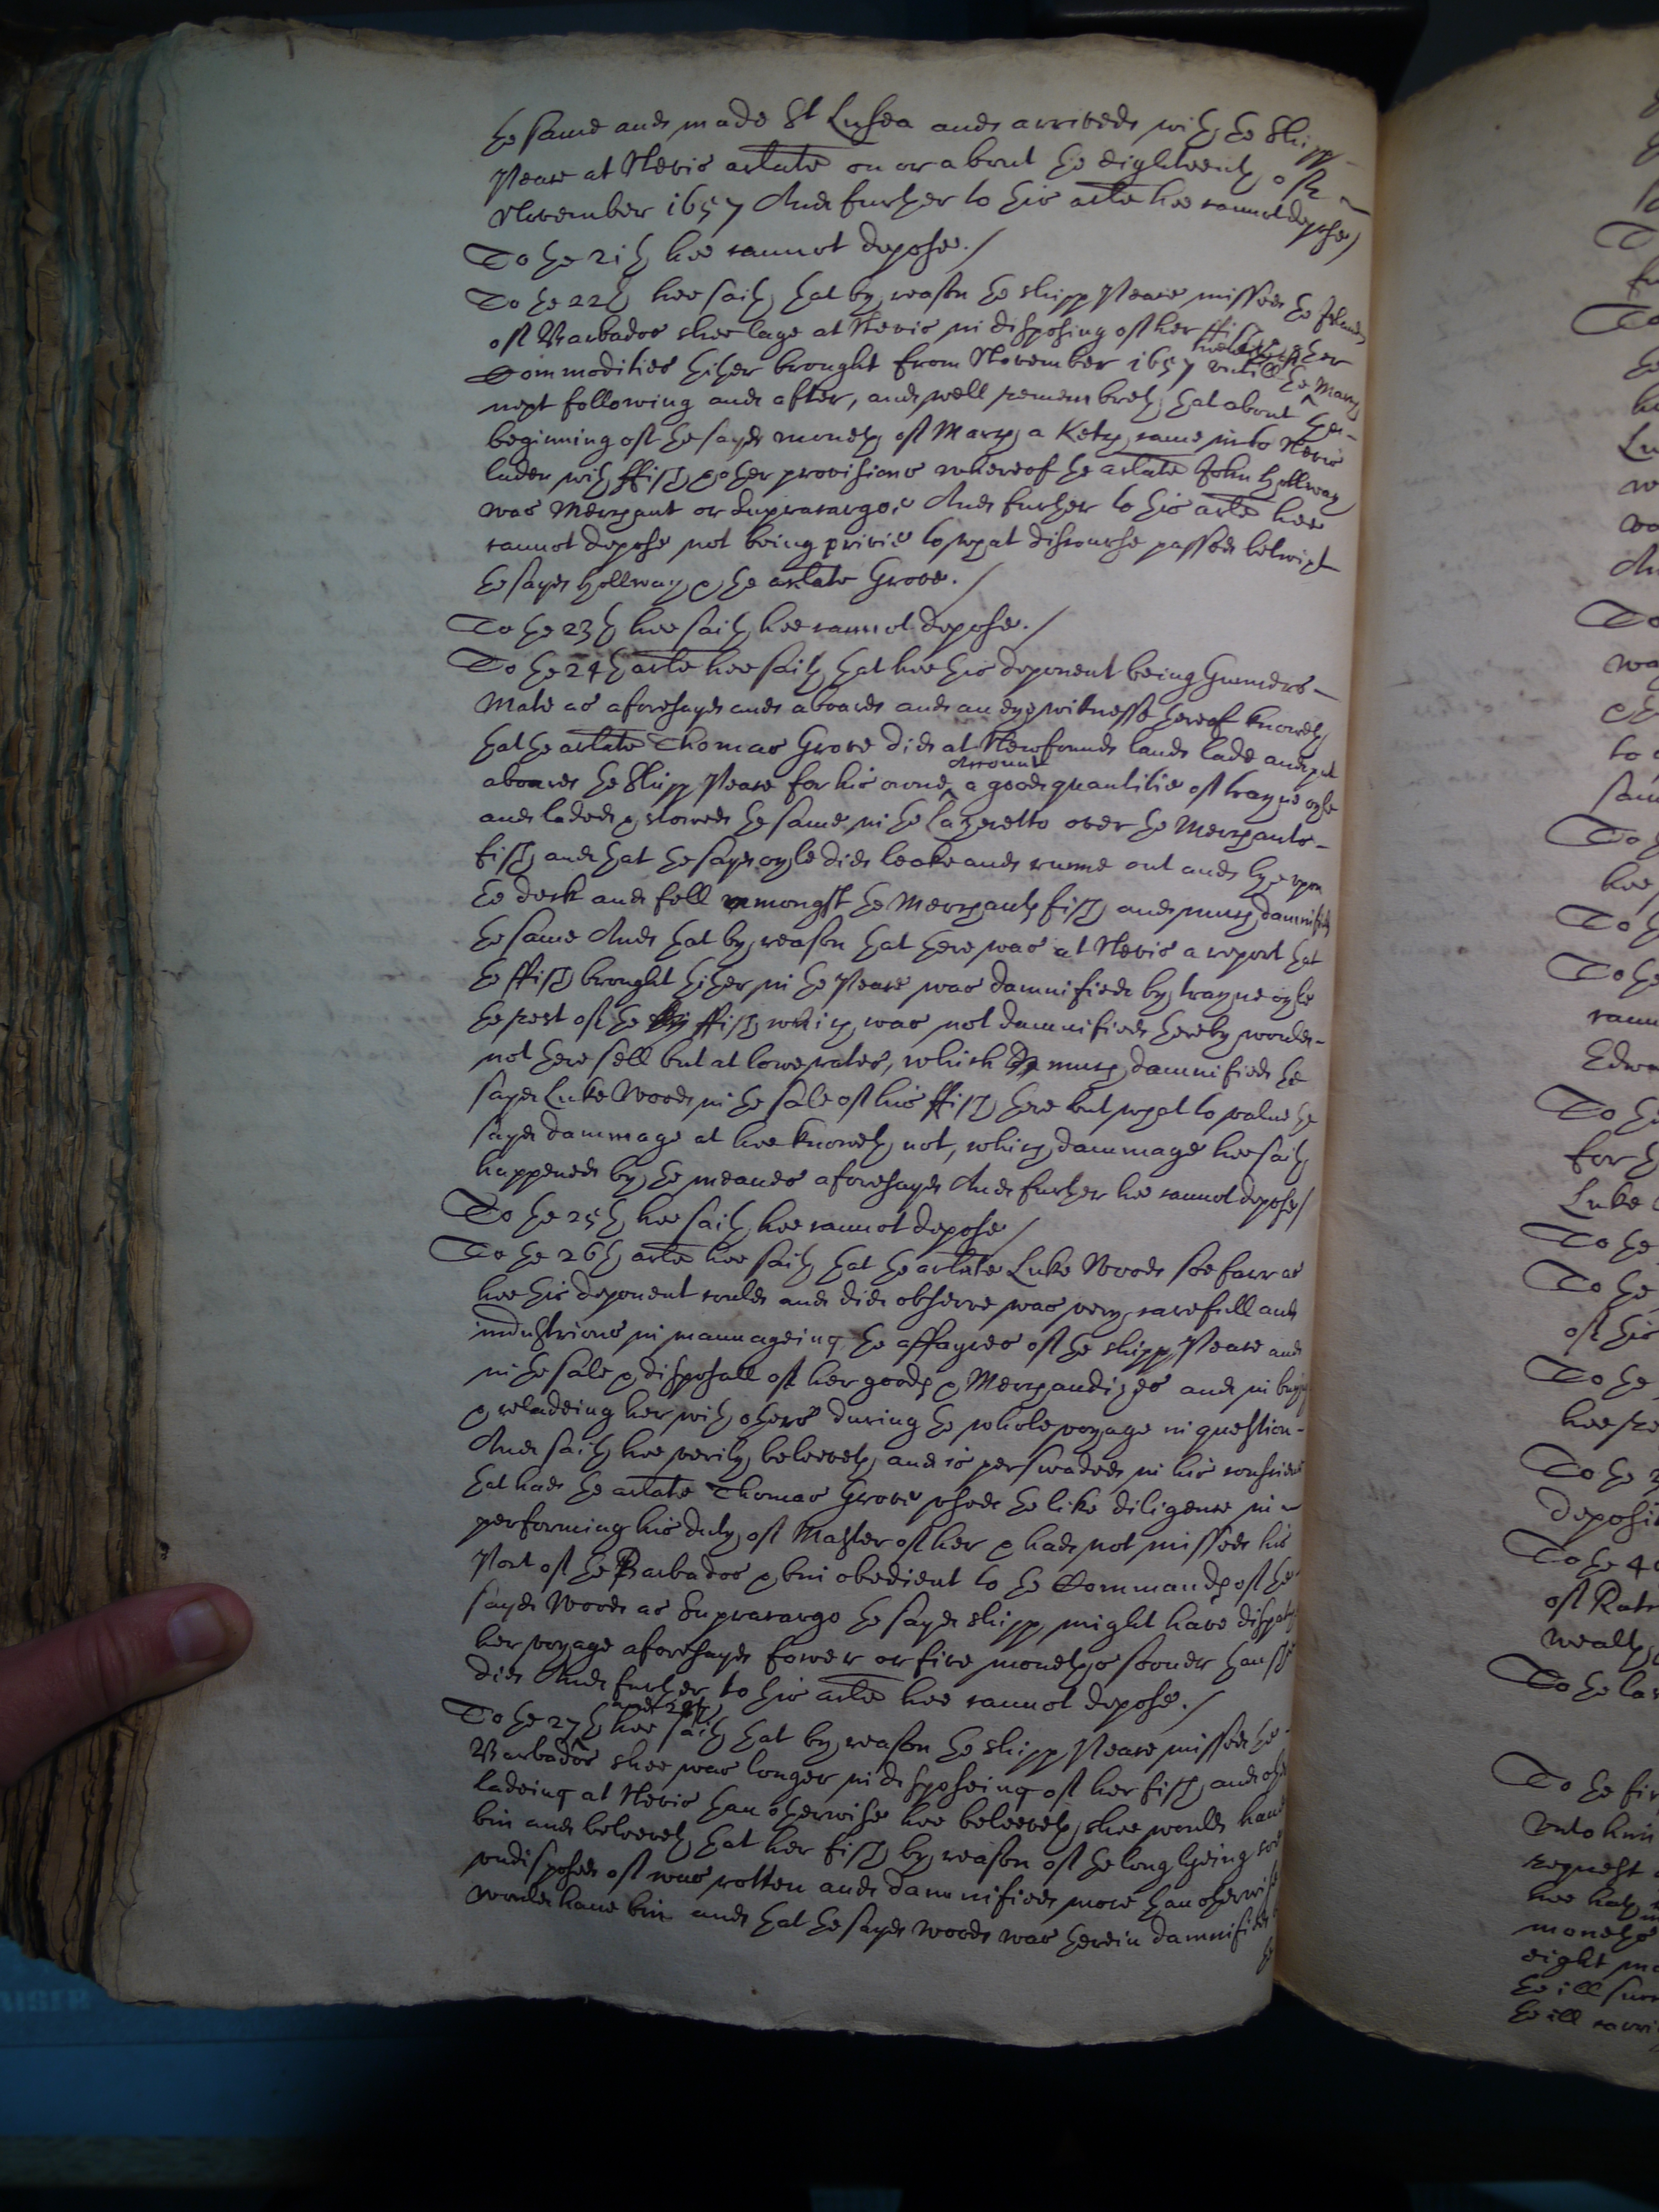 the same and made St Lusea and arrived with the Shipp
Peace at Nevis arlate on or about the eighteenth of
November 1657 And further to this arle hee cannot depose /
To the 21th hee cannot depose. /
To the 22th hee saith that by reason the shipp Peace missed the Island
of Barbados shee laye at Nevis in disposing of her ffish other
Commodities thither brought from November 1657 untill the March
next following and after, and well remembreth that about the
beginning of the sayd moneth of March a Ketch came into Nevis
laden with ffish & other provisions whereof the arlate John Hollway
was Merchant or Supracargo, And further to this arle hee
cannot depose not being privie to what discourse passed betwixt
the sayd Hollway & the arlate Grove. /
To the 23th hee saith hee cannot depose. /
To the 24th arle hee saith that hee this deponent being Gunners
Mate as aforesayd and aboard and an eye witnesse thereof knoweth
that the arlate Thomas Grove did at Newfound land lade and put
aboard the Shipp Peace for his owne Accounte a good quantitie of trayne oyle
and laded & stowed the same in the Lazeretto over the Merchants
fish and that the sayd oyle did leake and runne out and lye upon
the deck and fell amongst the Merchants fish and much damnified
the same And that by reason that there was at Nevis a report that
the ffish brought thither in the Peace was damnified by trayne oyle
the rest of the ffish which was not damnified thereby would
not there sell but at lowe rates, which much damnified the
sayd Luke Wood in the sale of his ffish there but what to value the
sayd dammage at hee knoweth not, which dammage hee saith
happened by the meanes aforesayd And further hee cannot depose /
To the 25th hee saith hee cannot depose /
To the 26th arle hee saith that the arlate Luke Wood soe farr as
hee this deponent could and did observe was very carefull and
industrious in mannageing the affayres of the shipp Peace and
in the sale & disposall of her goods & Merchandizes and in buying
& reladeing her with others during the whole voyage in question
And saith hee verily beleeveth and is perswaded in his conscience
that had the arlate Thomas Grove used the like diligence in
performing his duty of Master of her & had not missed his
Port of the Barbados & bin obedient to the Commands of the
sayd Wood as Supracargo the sayd shipp might have dispatched
her voyage aforesayd fower or five moneths sooner than shee
did And further to this arle hee cannot depose. /
To the 27th and 28th hee saith that by reason the shipp Peace missed the
Barbados shee was longer in disposeing of her fish and other
ladeing at Nevis than otherwise hee beleeveth shee would have
bin and beleeveth that her fish by reason of the long lyeing soe
undisposed of was rotten and damnified more than otherwise
would have bin and that the sayd Wood was therein damnified
the